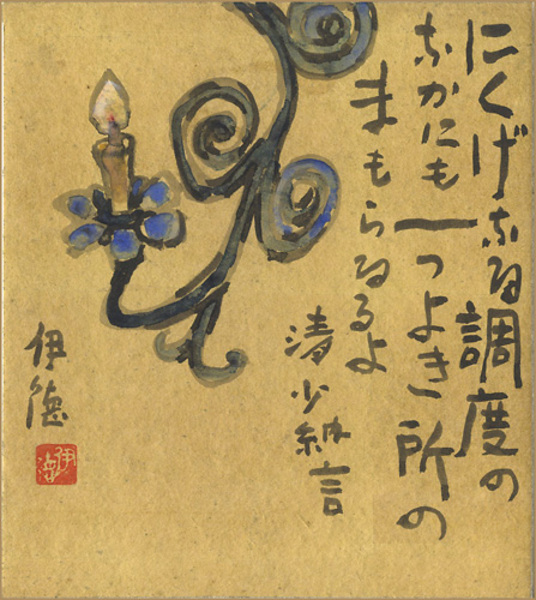 にくげなる調度の
なかにも一つよき所の
まもらるるよ
清少納言
伊徳